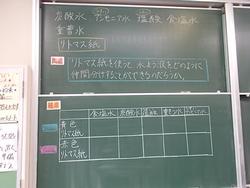 炭酸水 アンモニア水 塩酸 食塩水
重曹水
リトマス紙
リトマス紙を使うと、水よう液をどのように
仲間分けすることができるのだろうか。
食塩水 炭酸水 塩酸 重そう水 アンモニア水
青色
リトマス紙
赤色
リトマス紙